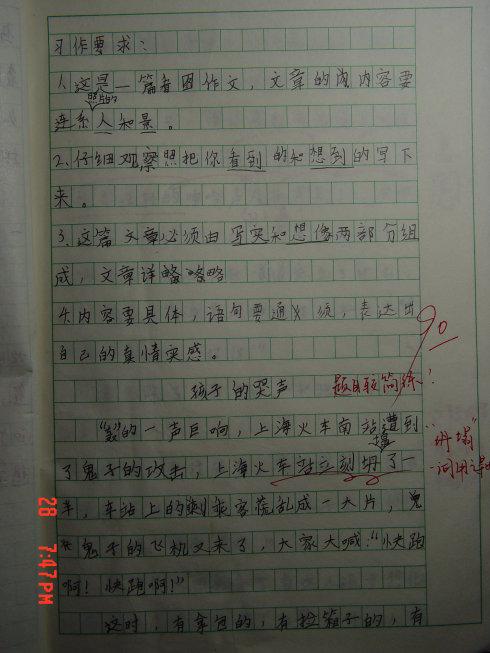 习作要求：
1.这是一篇看图作文，文章的内容要
照片的
连系人和景。
2.仔细观察照把你看到的和想到的写下
来。
3.这篇文章必须由写实和想像两部分组
成，文章详略
4.内容要具体，语句要通顺，表达出
自己的真情实感。
90
孩子的哭声
题目较简练！
"轰"的一声巨响，上海火车南站遭到
了鬼子的攻击，上海火车站立刻坍了一
"坍塌"
半，车站上的乘客慌乱成一大片，鬼
鬼子的飞机又来了，大家大喊："快跑
啊！快跑啊！"
这时，有拿包的，有捡箱子的，有
28 7:47PM